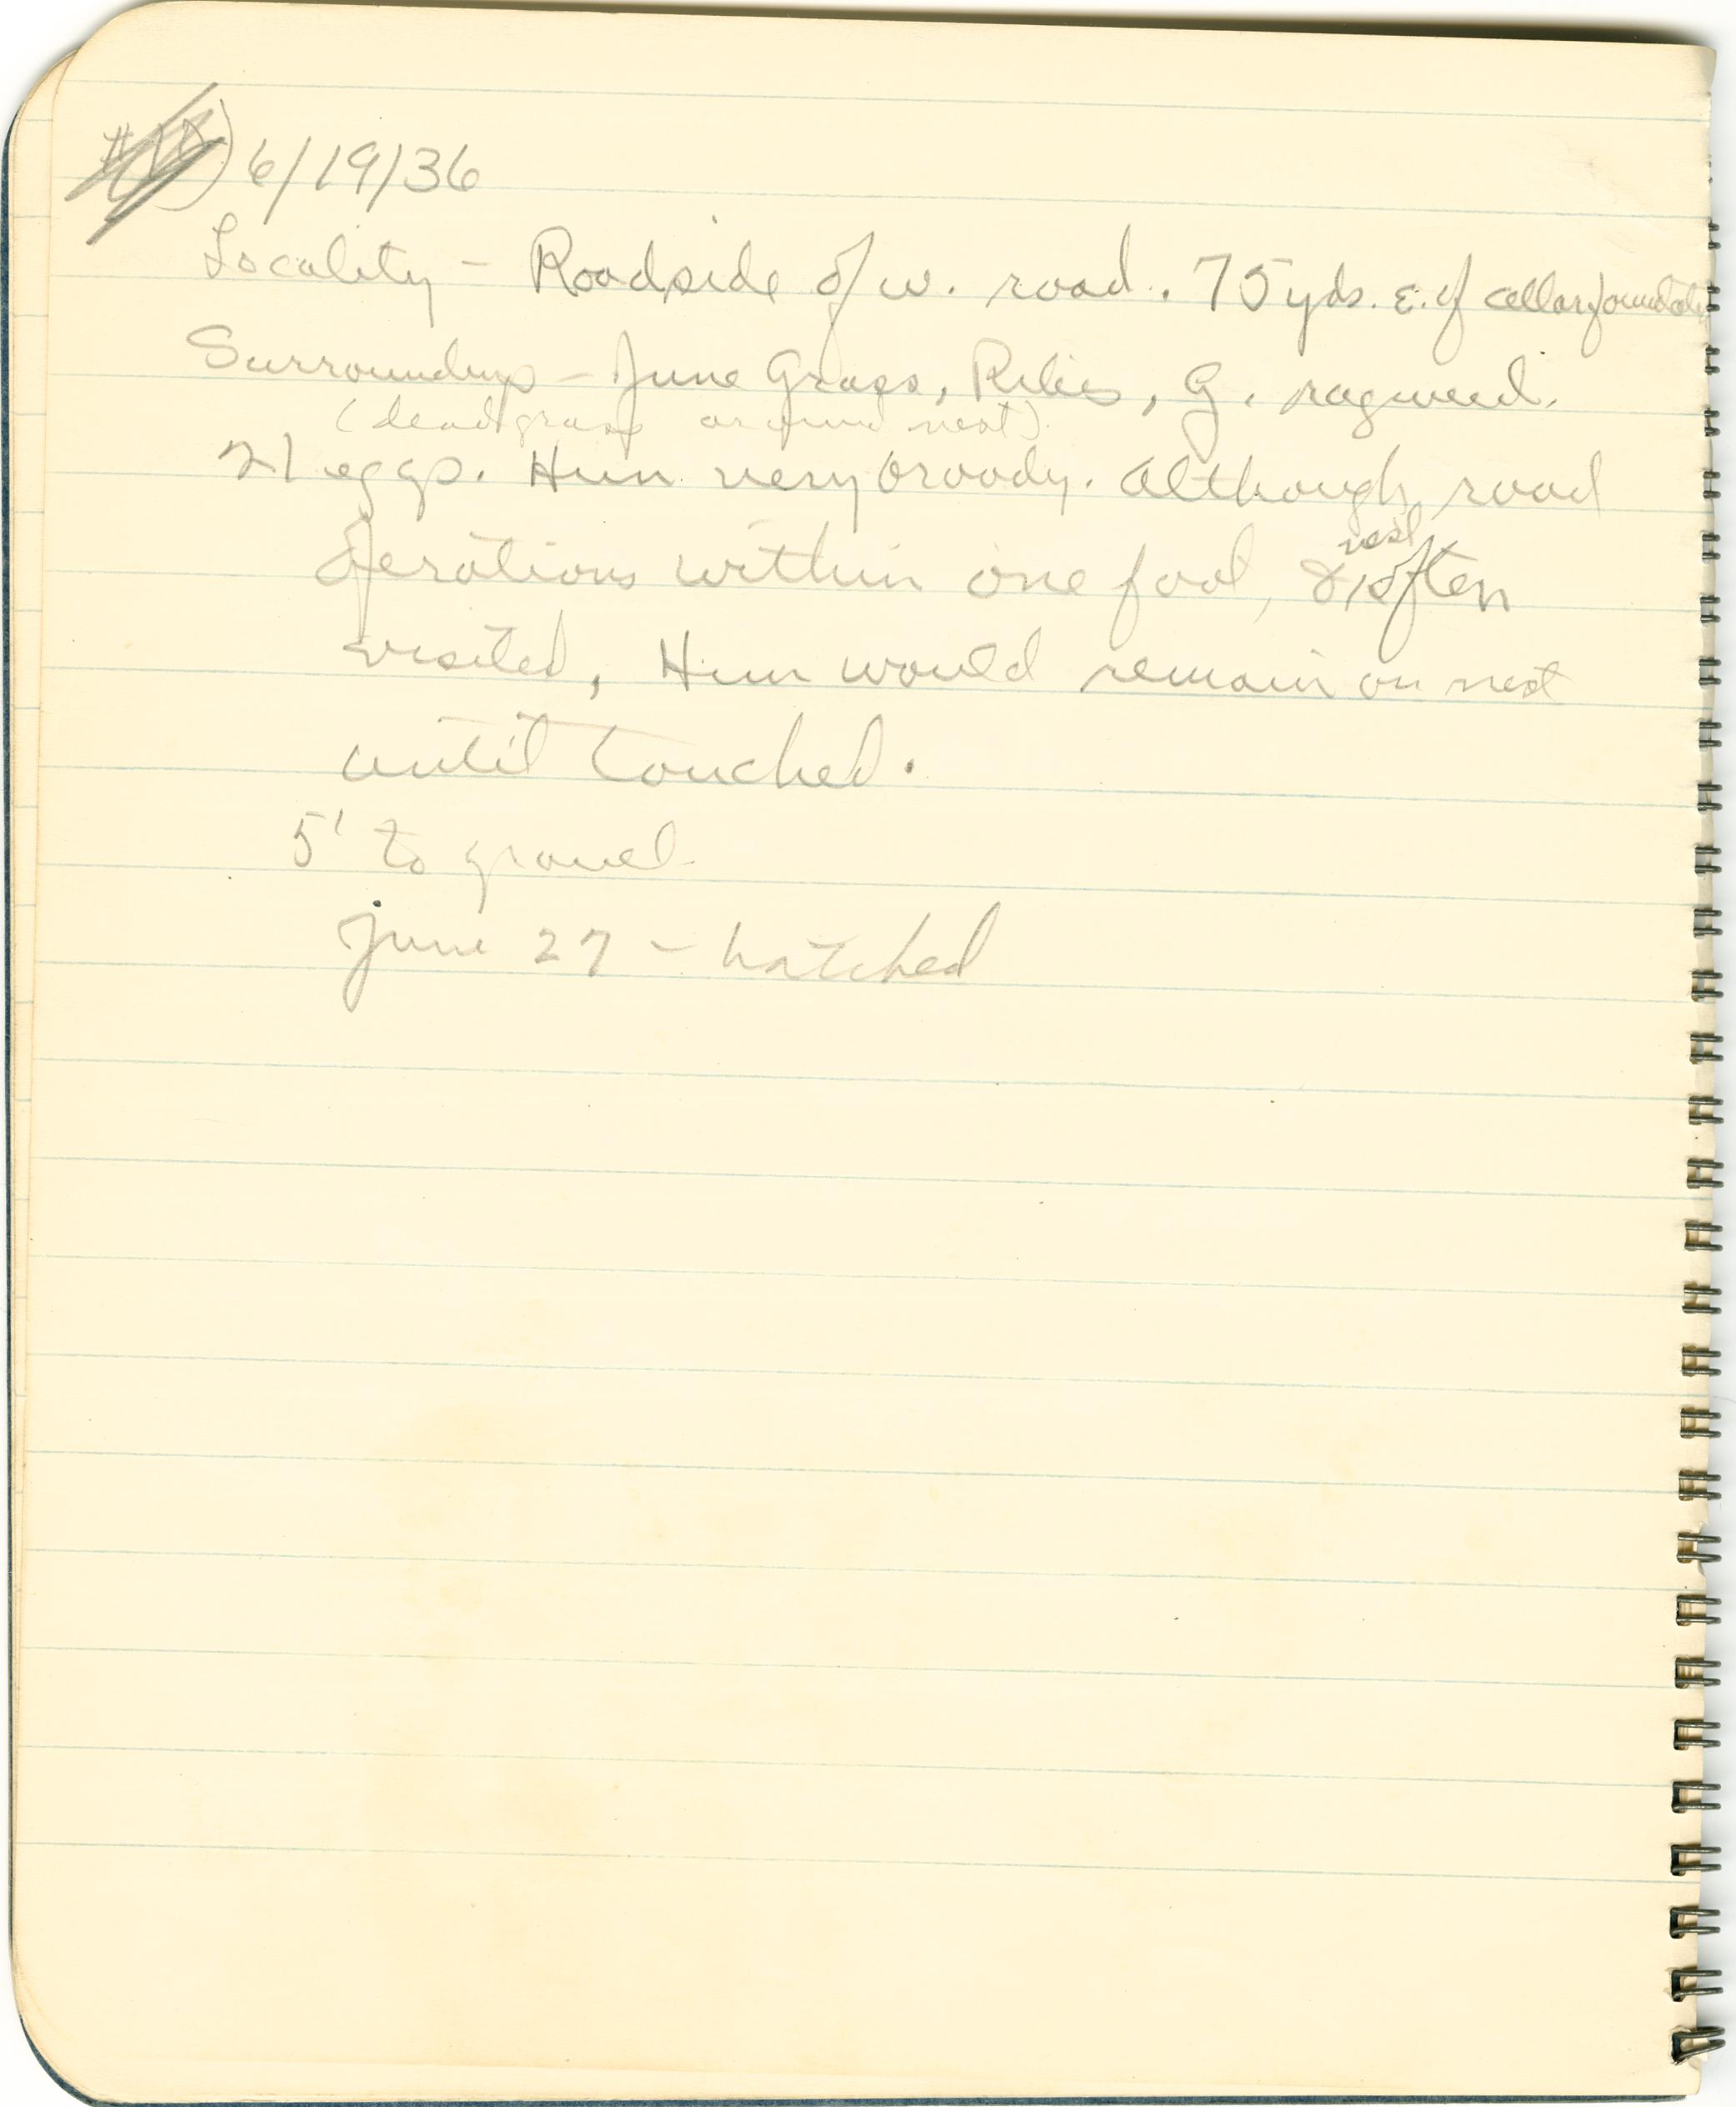 6/19/36
Locality - Roadside of w. road. 75 yds. E. of cellar foundation
Surroundings - June Grass, Ribes, G. ragweed.
(dead grass around nest).
21 eggs. Hun very broody. Although road
operations within one foot, & nest often
visited, Hun would remain on nest
until touched.
5' to gravel
June 27 - hatched